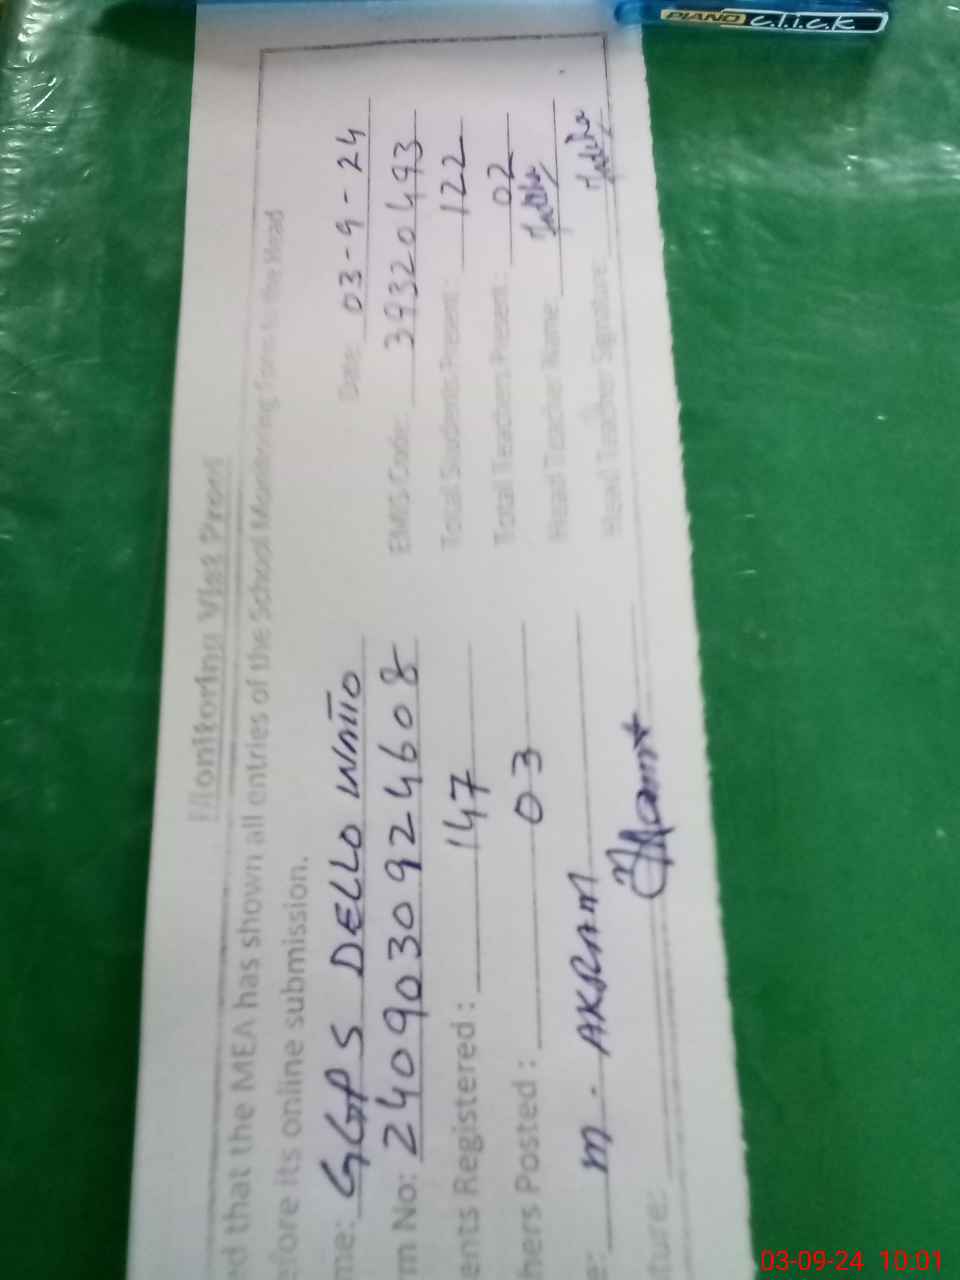 PIANO c.l.i.c.k
Monitoring Visit Proof
d that the MEA has shown all entries of the School Monitoring Form to the Head
efore its online submission.
Date: 03-9-24
me: GGPS DELLO WATTO
EMIS Code: 39320493
m No: 2409030924608
Total Students Present: 122
ents Registered: 147
Total Teachers Present: 02
hers Posted: 03
Head Teacher Name:
e: M. AKRAM
Head Teacher Signature:
ture:
03-09-24 10:01